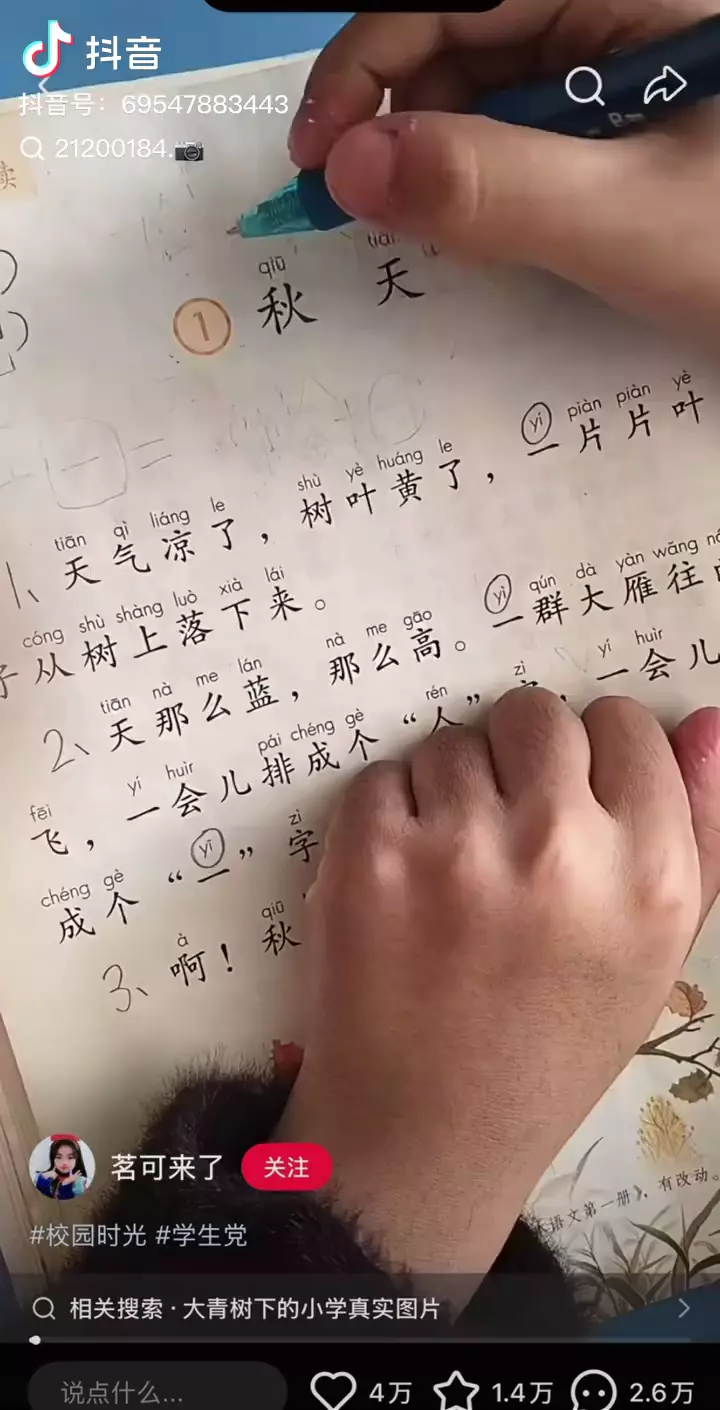 抖音
抖音号：69547883443
21200184.
读
qiū tiān
① 秋天
yí piàn piàn yè
tiān qì liáng le shù yè huáng le
1、天气凉了，树叶黄了，一片片叶
cóng shù shàng luò xià lái
子从树上落下来。
tiān nà me lán nà me gāo yì qún dà yàn wǎng
2、天那么蓝，那么高。一群大雁往
fēi yí huìr pái chéng gè rén zì yí huìr
飞，一会儿排成个“人”字，一会儿
chéng gè yī zì
成个“一”字
à qiū
3、啊！秋
语文第一册》，有改动。
茗可来了 关注
#校园时光 #学生党
相关搜索·大青树下的小学真实图片
说点什么... 4万 1.4万 2.6万